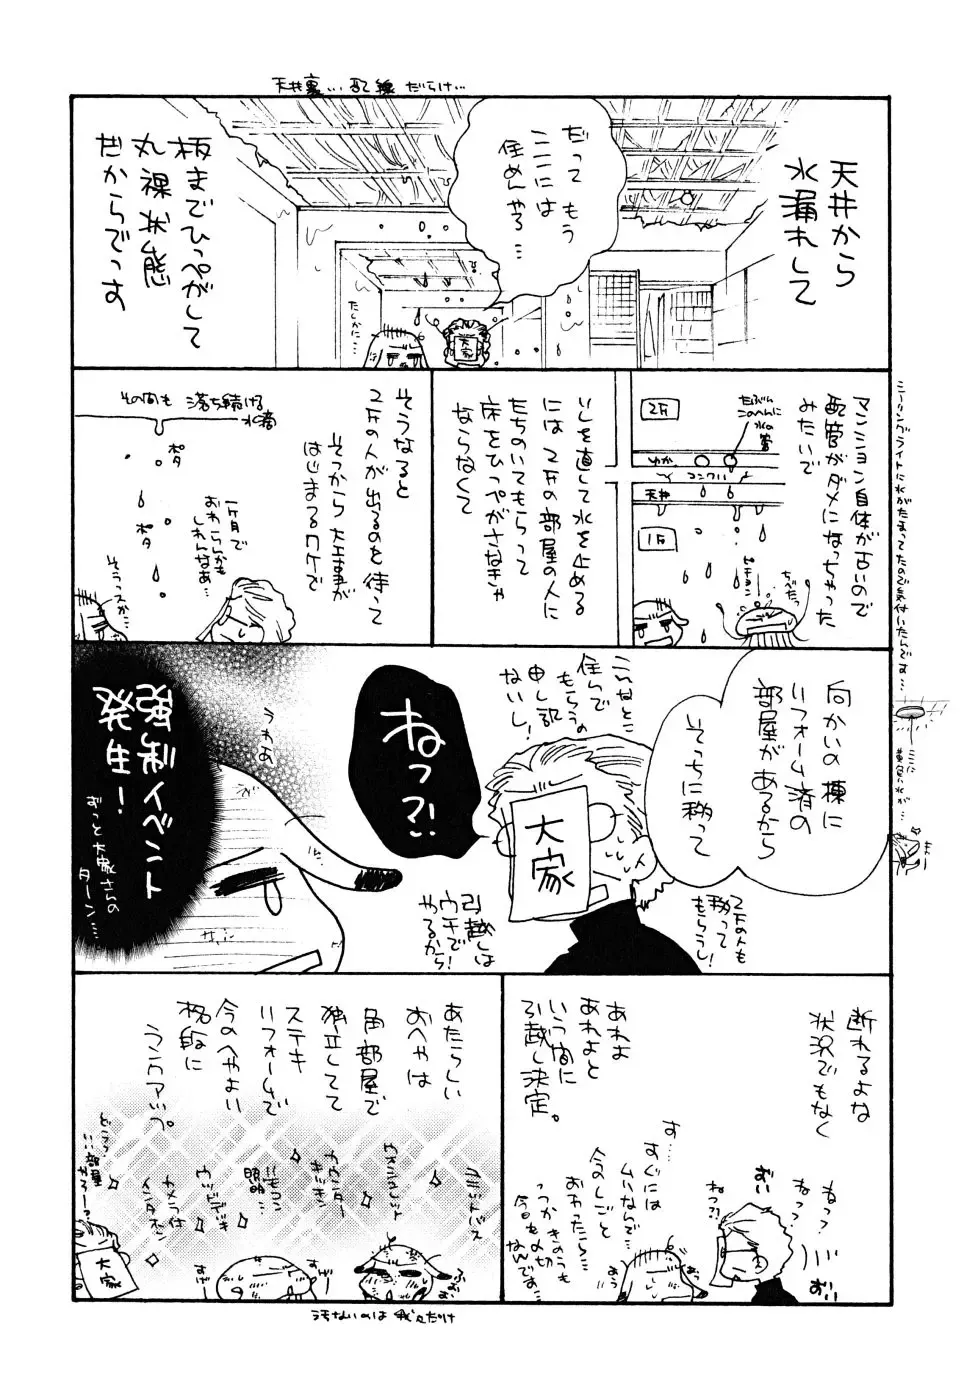 天井裏…配線だらけ…
天井から
水漏れして
だって もう
ここには
住めんやろ…
たしかに…
大家
板までひっぺがして
丸裸状態
だからでっす
マンション自体が古いので
配管がダメになっちゃった
みたいで
2F
たぶん
このへんに
水の
管
ゆか
コンクリ
天井
1F
ピチョン
ちべたっ
シーリングライトに水がたまってたので気付いたんです…
ここに
いしを直して水を止める
には 2Fの部屋の人に
たちのいてもらって
床をひっぺがさなきゃ
ならなくて
そうなると
2Fの人が出るのを待って
そっから大工事が
はじまるワケで
その間も 落ち続ける
水滴
ポタ
ポタ
一ヶ月で
おわらんかも
しれんなあ…
そうっスか…
向かいの棟に
リフォーム済の
部屋があるから
そっちに移って
2Fの人も
移って
もらうし!
こんなとこ
住んで
もらうの
申し訳
ないし!
大家
引越しは
ウチで
やるから!
ねっ?!
うわあ
強制イベント
発生!
ずっと大家さんの
ターン…
断れるよな
状況でもなく
あれよ
あれよと
いう間に
引越し決定。
ねっ?
ねっ?
おい
ねっ?!
おい
す…
すぐには
ムリなんで…
今のしごと
おわったら…
っつかきのうも
今日も〆切
なんです…
あう
あたらしい
おへやは
角部屋で
独立してて
ステキ
リフォームで
今のへやよい
格段に
ランクアップ。
ウォシュレット
カウンター
キッチン
リモコン
照明
ウッドデッキ
カメラ付
インタホン
どこう?
いい部屋
やろー?
大家
すげー
すげー
汚ないのは 我々だけ